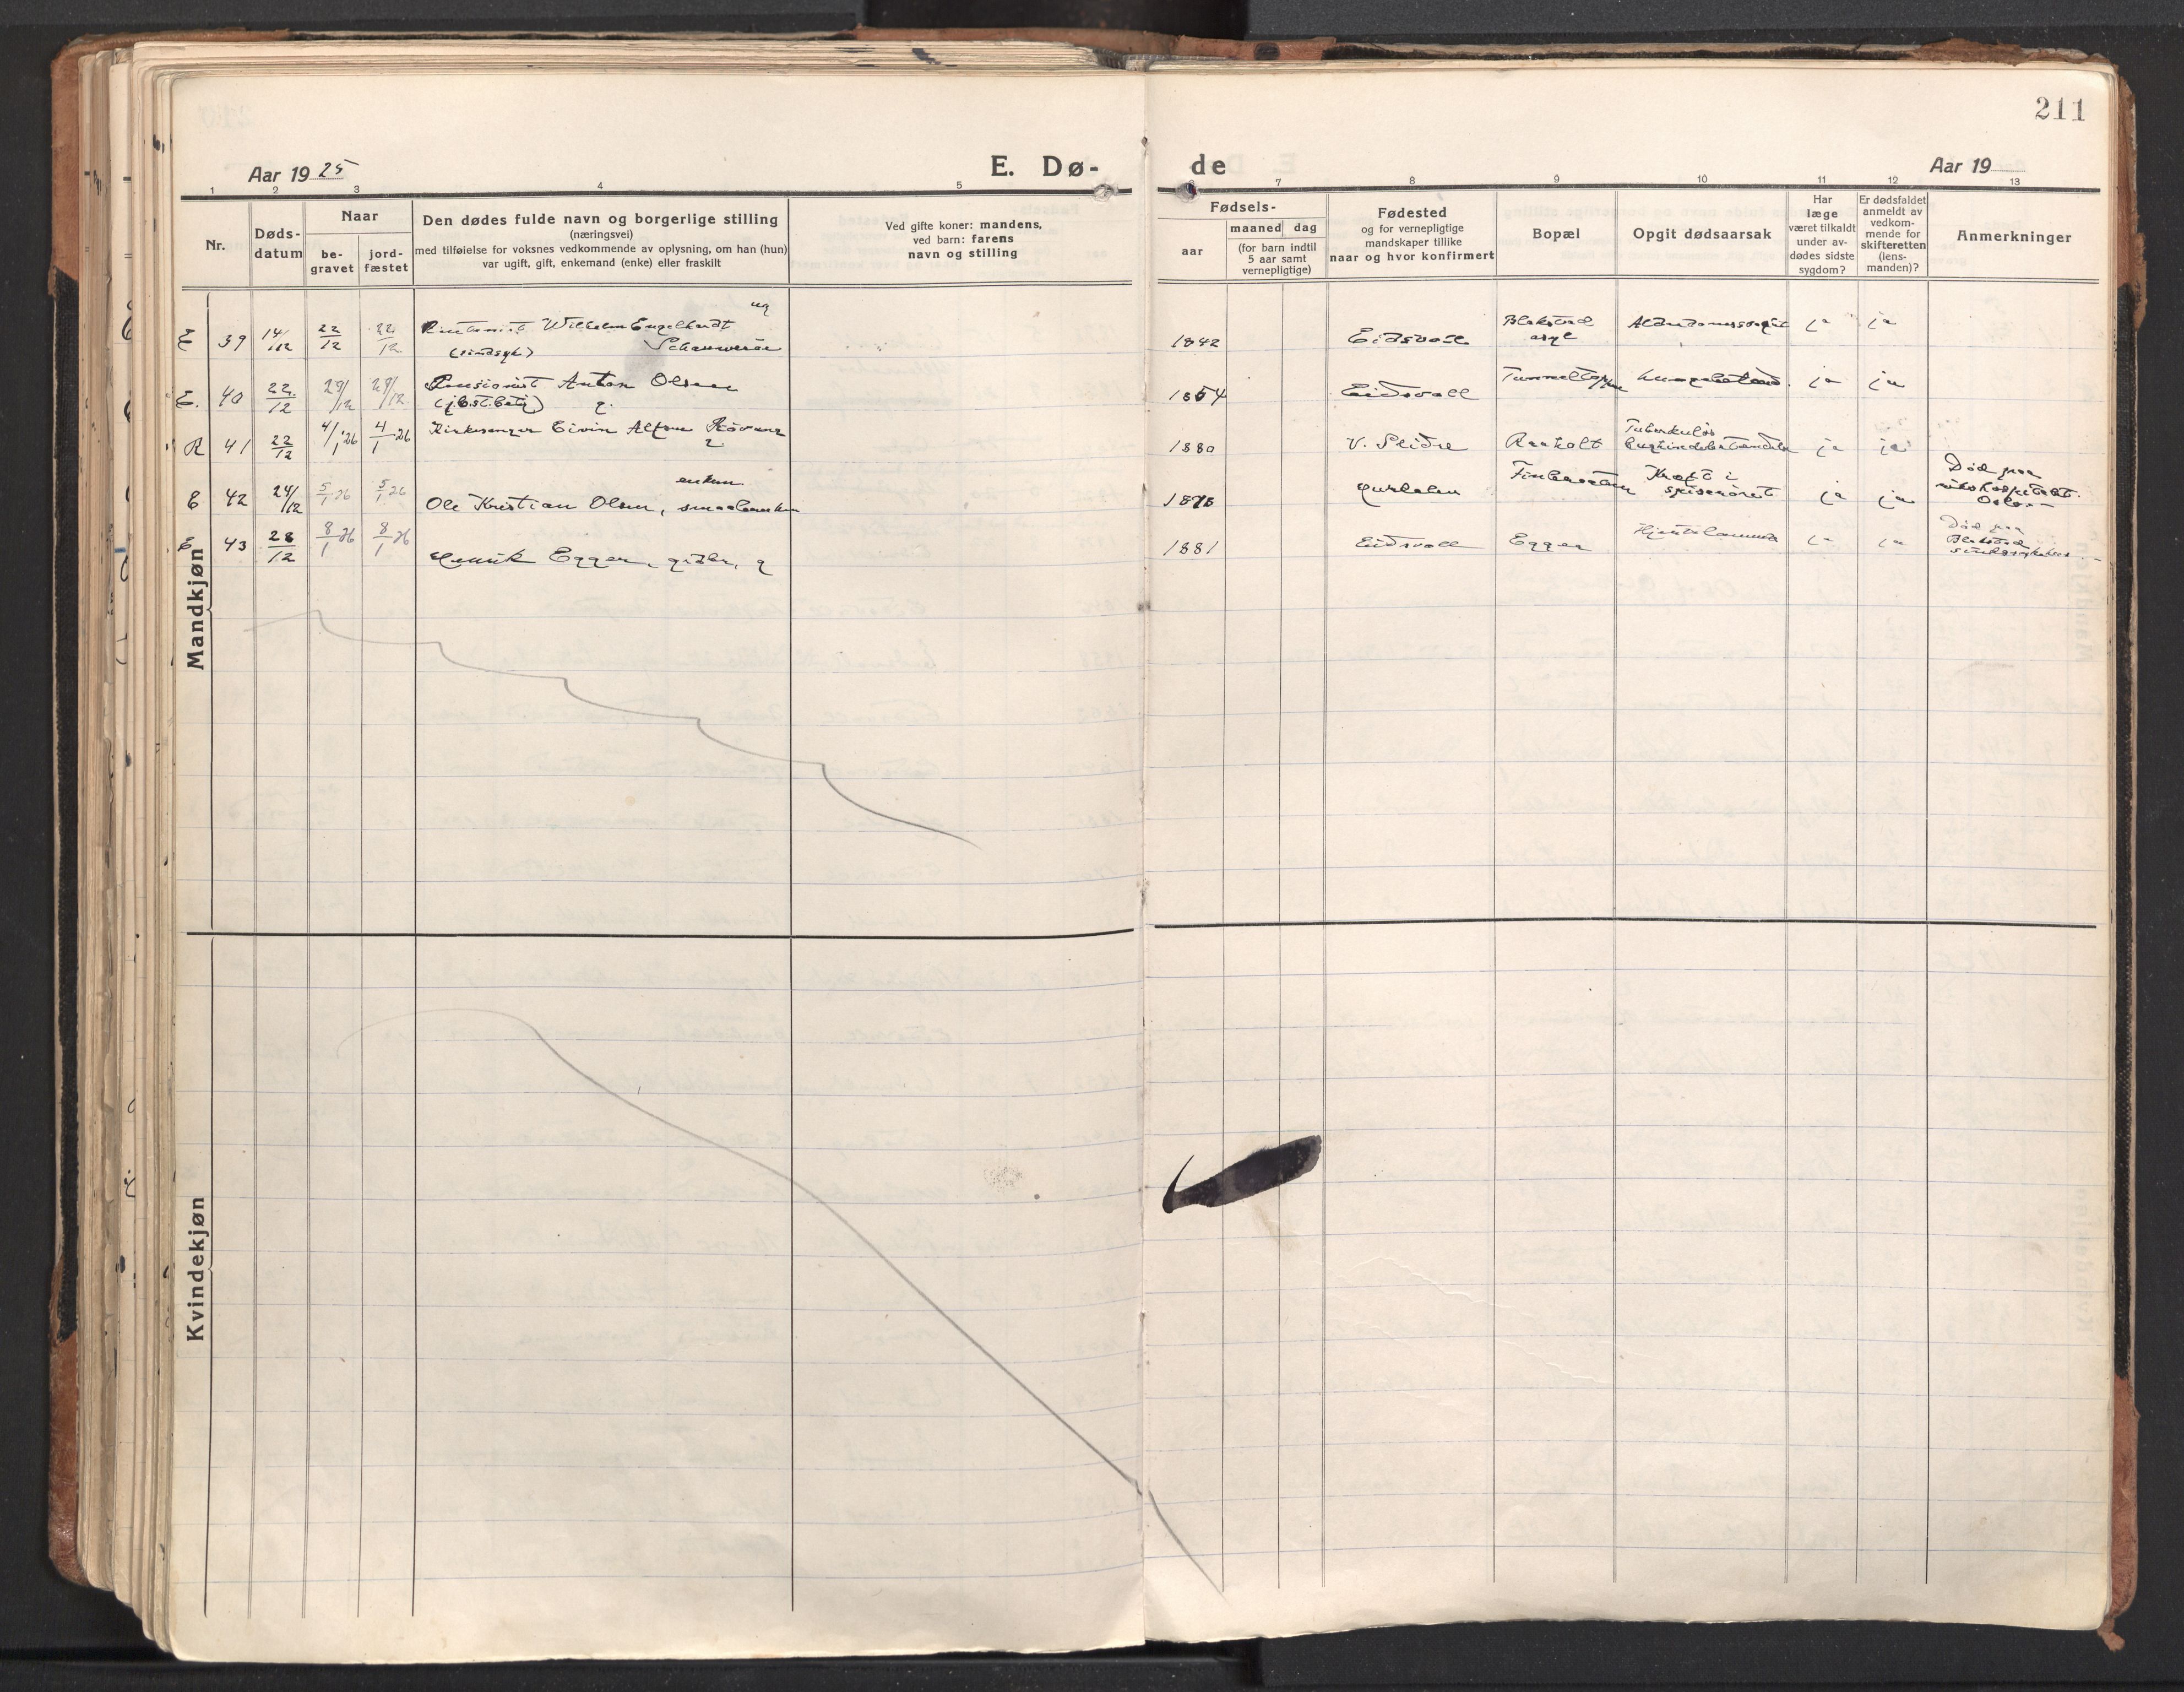 211
Aar 1925
E. Dø-
de
Aar 19
1 2 3 4 5 7 8 9 10 11 12 13
Nr.
Døds-
datum
Naar
be-
gravet
jord-
fæstet
Den dødes fulde navn og borgerlige stilling
(næringsvei)
med tilføielse for voksnes vedkommende av oplysning, om han (hun)
var ugift, gift, enkemand (enke) eller fraskilt
Ved gifte koner: mandens,
ved barn: farens
navn og stilling
Fødsels-
aar
maaned dag
(for barn indtil
5 aar samt
vernepligtige)
Fødested
og for vernepligtige
mandskaper tillike
naar og hvor konfirmert
Bopæl
Opgit dødsaarsak
Har
læge
været tilkaldt
under av-
dødes sidste
sygdom?
Er dødsfaldet
anmeldt av
vedkom-
mende for
skifteretten
(lens-
manden)?
Anmerkninger
Mandkjøn
ug
E 39 14/12 22/12 22/12 Wilhelm Engelhardt 1842 Eidsvoll Blakstad asyl ja ja
(sindsyk)
E. 40 22/12 29/12 29/12 Pensionist Anton Olsen 1854 Eidsvoll ja ja
g.
R 41 22/12 4/1 '26 4/1 26 Kirkesanger Eivin 1880 V. Slidre Raaholt Tuberkuløs ja ja
g
enkem
E 42 24/12 5/1 26 5/1 26 Ole Kristian Olsen, 1875 Hurdalen Kræft i spiserøret ja ja Død paa rikshospitalet Oslo
E 43 28/12 8/1 26 8/1 26 Henrik Egger, g 1881 Eidsvoll Egger ja ja Død paa Blakstad
Kvindekjøn